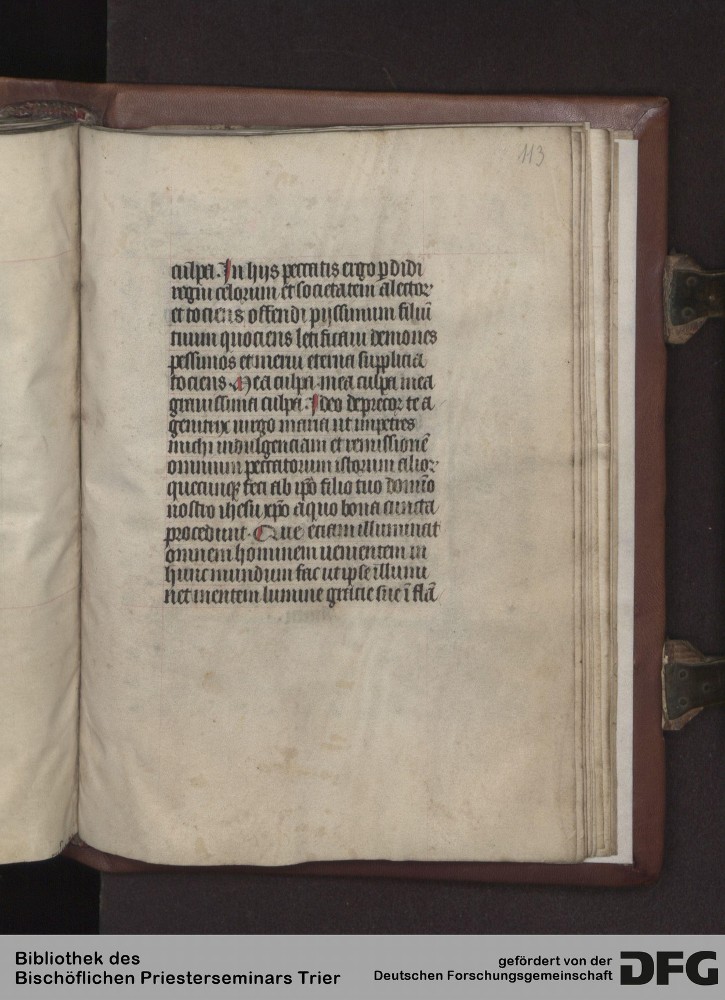 113
culpa. In hijs peccatis ergo p̄didi
regni celorum et societatem alectoꝝ
et tociens offendi pijssimum filiū
tuum quociens letificaui demones
pessimos et merui eterna supplicia
tociens. Mea culpa mea culpa mea
grauissima culpa. Ideo deprecor te a
genitrix uirgo maria ut impetres
michi indulgenciam et remissionē
omnium peccatorum istorum alioꝝ
quecunqꝫ feci ab ip̄o filio tuo domīo
nostro ihesu xp̄o a quo bona cuncta
procedunt. Que eciam illuminat
omnem hominem uenientem in
hunc mundum fac ut ipse illumi
net mentem lumine gracie sue ī flā
Bibliothek des
Bischöflichen Priesterseminars Trier
gefördert von der
Deutschen Forschungsgemeinschaft
DFG